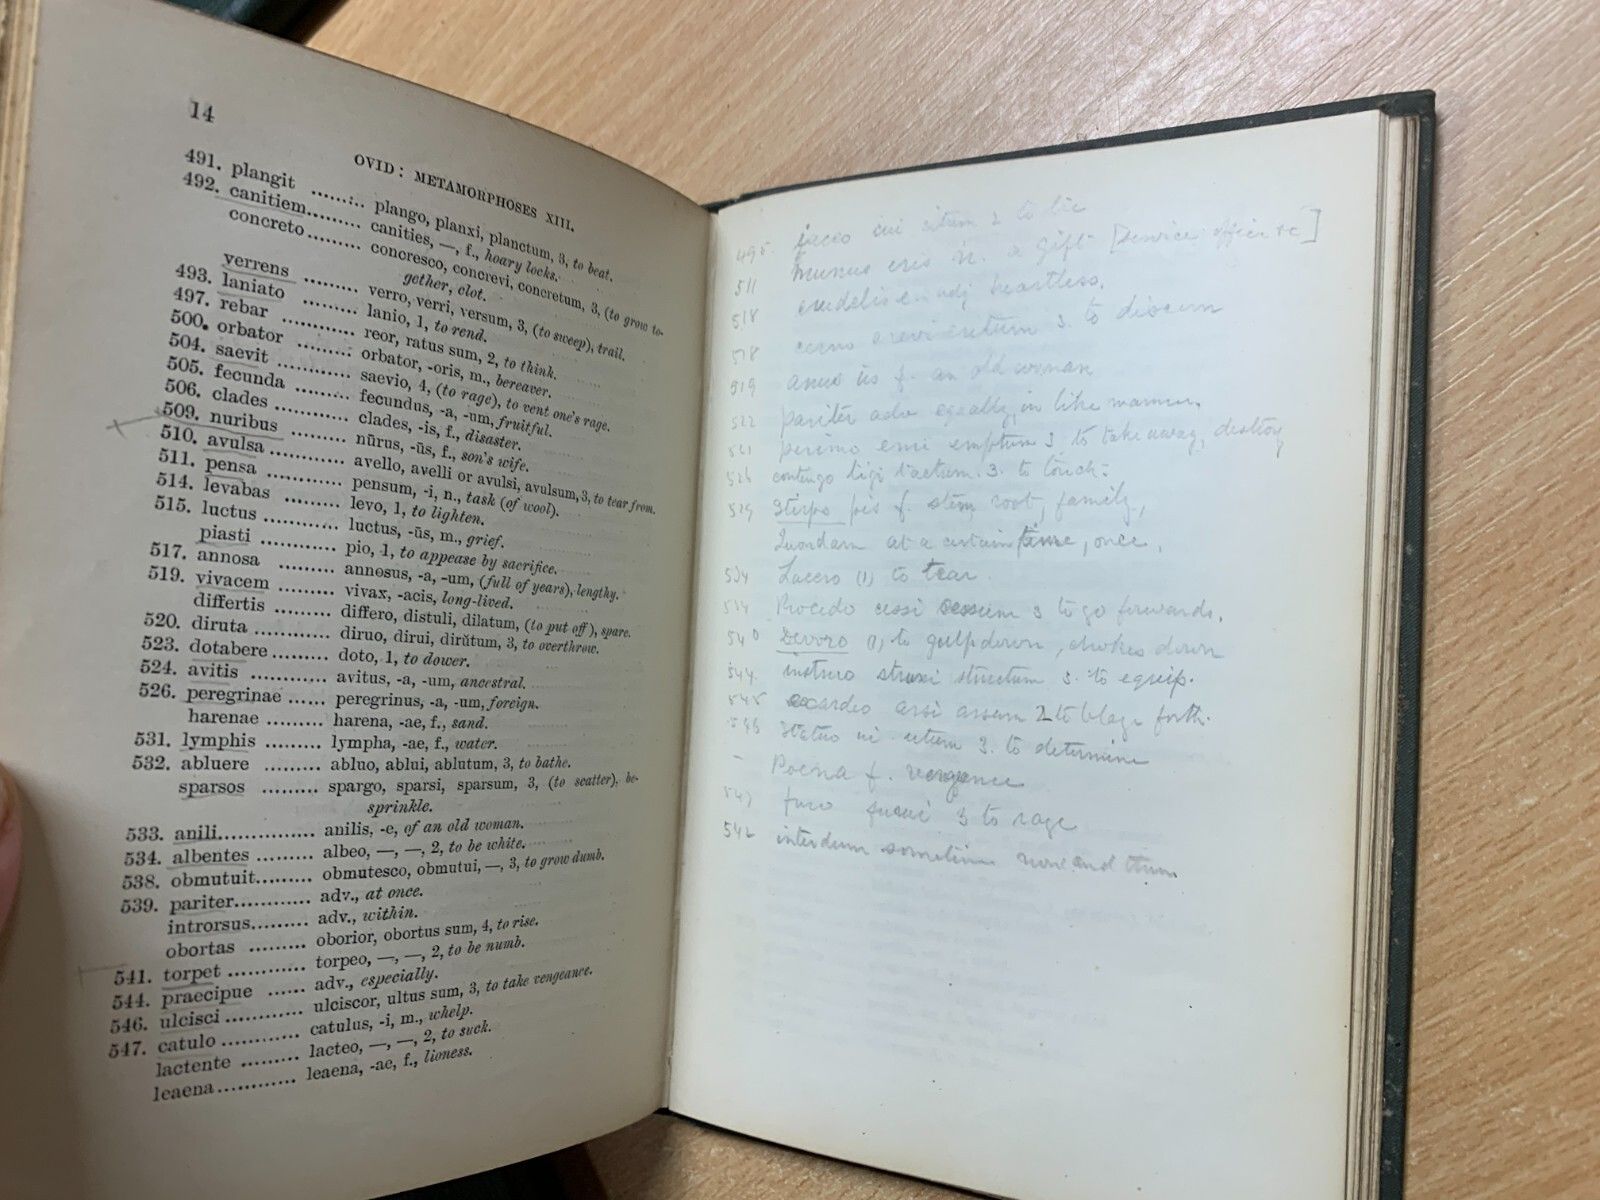 14
OVID: METAMORPHOSES XIII.
491. plangit ........ plango, planxi, planctum, 3, to beat.
492. canitiem......... canities, —, f., hoary locks.
concreto......... concresco, concrevi, concretum, 3, (to grow to-
gether, clot.
verrens ......... verro, verri, versum, 3, (to sweep), trail.
493. laniato ......... lanio, 1, to rend.
497. rebar ............ reor, ratus sum, 2, to think.
500. orbator ......... orbator, -oris, m., bereaver.
504. saevit ............ saevio, 4, (to rage), to vent one's rage.
505. fecunda ......... fecundus, -a, -um, fruitful.
506. clades ............ clades, -is, f., disaster.
509. nuribus ......... nŭrus, -ūs, f., son's wife.
510. avulsa ............ avello, avelli or avulsi, avulsum, 3, to tear from.
511. pensa ............ pensum, -i, n., task (of wool).
514. levabas ......... levo, 1, to lighten.
515. luctus ............ luctus, -ūs, m., grief.
piasti ............ pio, 1, to appease by sacrifice.
517. annosa ......... annosus, -a, -um, (full of years), lengthy.
519. vivacem ......... vivax, -acis, long-lived.
differtis ......... differo, distuli, dilatum, (to put off), spare.
520. diruta ............ diruo, dirui, dirŭtum, 3, to overthrow.
523. dotabere ......... doto, 1, to dower.
524. avitis ............ avitus, -a, -um, ancestral.
526. peregrinae ...... peregrinus, -a, -um, foreign.
harenae ......... harena, -ae, f., sand.
531. lymphis ......... lympha, -ae, f., water.
532. abluere ......... abluo, ablui, ablutum, 3, to bathe.
sparsos ......... spargo, sparsi, sparsum, 3, (to scatter), be-
sprinkle.
533. anili............... anilis, -e, of an old woman.
534. albentes ......... albeo, —, —, 2, to be white.
538. obmutuit......... obmutesco, obmutui, —, 3, to grow dumb.
539. pariter............ adv., at once.
introrsus......... adv., within.
obortas ......... oborior, obortus sum, 4, to rise.
541. torpet ............ torpeo, —, —, 2, to be numb.
544. praecipue ...... adv., especially.
546. ulcisci ............ ulciscor, ultus sum, 3, to take vengeance.
547. catulo ............ catulus, -i, m., whelp.
lactente ......... lacteo, —, —, 2, to suck.
leaena ............ leaena, -ae, f., lioness.
495 jaceo cui situm 2 to lie
511 munus eris n. a gift [service office &c]
518 crudelis e adj heartless.
518 cerno crevi cretum 3. to discern
519 anus us f. an old woman
522 pariter adv equally, in like manner.
perimo emi emptum 3 to take away, destroy
526 contingo tigi tactum. 3. to touch.
529 Stirps pis f. stem, root, family,
Quondam at a certain time, once.
534 Lacero (1) to tear.
Procedo cessi cessum 3 to go forwards.
540 Devoro (1) to gulp down, chokes down
544 instruo struxi structum 3. to equip.
545 arsi arsum 2 to blaze forth.
546 Statuo ui utum 3. to determine
- Poena f. vengeance
furo furui 3 to rage
542 interdum sometime now and then